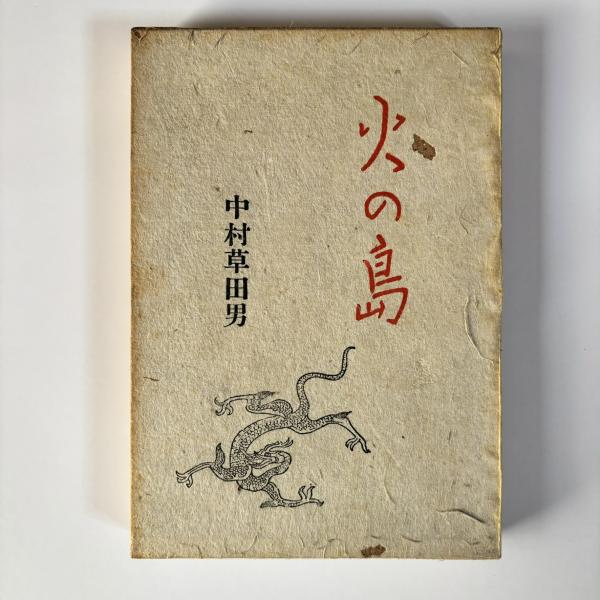 火の島
中村草田男